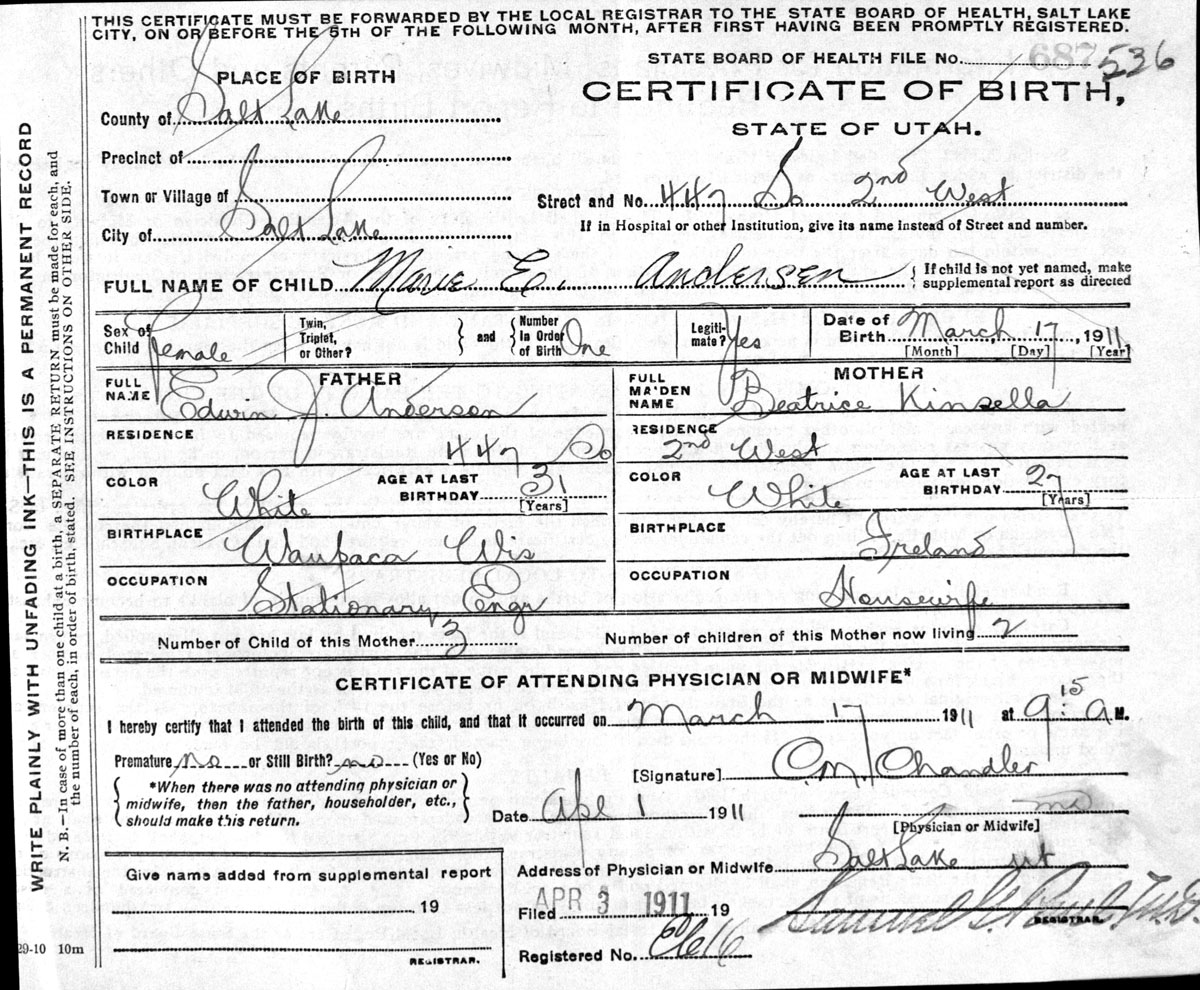 THIS CERTIFICATE MUST BE FORWARDED BY THE LOCAL REGISTRAR TO THE STATE BOARD OF HEALTH, SALT LAKE
CITY, ON OR BEFORE THE 5TH OF THE FOLLOWING MONTH, AFTER FIRST HAVING BEEN PROMPTLY REGISTERED.
WRITE PLAINLY WITH UNFADING INK—THIS IS A PERMANENT RECORD
N. B.—In case of more than one child at a birth, a SEPARATE RETURN must be made for each, and
the number of each, in order of birth, stated. SEE INSTRUCTIONS ON OTHER SIDE.
PLACE OF BIRTH
STATE BOARD OF HEALTH FILE No. 687 536
CERTIFICATE OF BIRTH,
STATE OF UTAH.
County of Salt Lake
Precinct of
Town or Village of
Street and No. 447 So 2nd West
City of Salt Lake
If in Hospital or other Institution, give its name instead of Street and number.
FULL NAME OF CHILD Marie E. Andersen
{ If child is not yet named, make
supplemental report as directed
Sex of Child Female
Twin, Triplet, or Other? } and { Number in Order of Birth One
Legiti-mate? Yes
Date of Birth March, 17, 1911
[Month] [Day] [Year]
FATHER
FULL NAME Edwin J. Anderson
MOTHER
FULL MAIDEN NAME Beatrice Kinsella
RESIDENCE 447 So
RESIDENCE 2nd West
COLOR White AGE AT LAST BIRTHDAY 31 [Years]
COLOR White AGE AT LAST BIRTHDAY 27 [Years]
BIRTHPLACE Waupaca Wis
BIRTHPLACE Ireland
OCCUPATION Stationary Engr
OCCUPATION Housewife
Number of Child of this Mother 3 Number of children of this Mother now living 2
CERTIFICATE OF ATTENDING PHYSICIAN OR MIDWIFE*
I hereby certify that I attended the birth of this child, and that it occurred on March 17 1911 at 9:15 A M.
Premature no or Still Birth? no (Yes or No)
[Signature] C.M. Chandler
{ *When there was no attending physician or
midwife, then the father, householder, etc.,
should make this return. }
Date Apl 1 1911
MD
[Physician or Midwife]
Give name added from supplemental report
19
REGISTRAR.
Address of Physician or Midwife Salt Lake Ut
Filed APR 3 1911 19
Samuel G. REGISTRAR.
Registered No.
29-10 10m